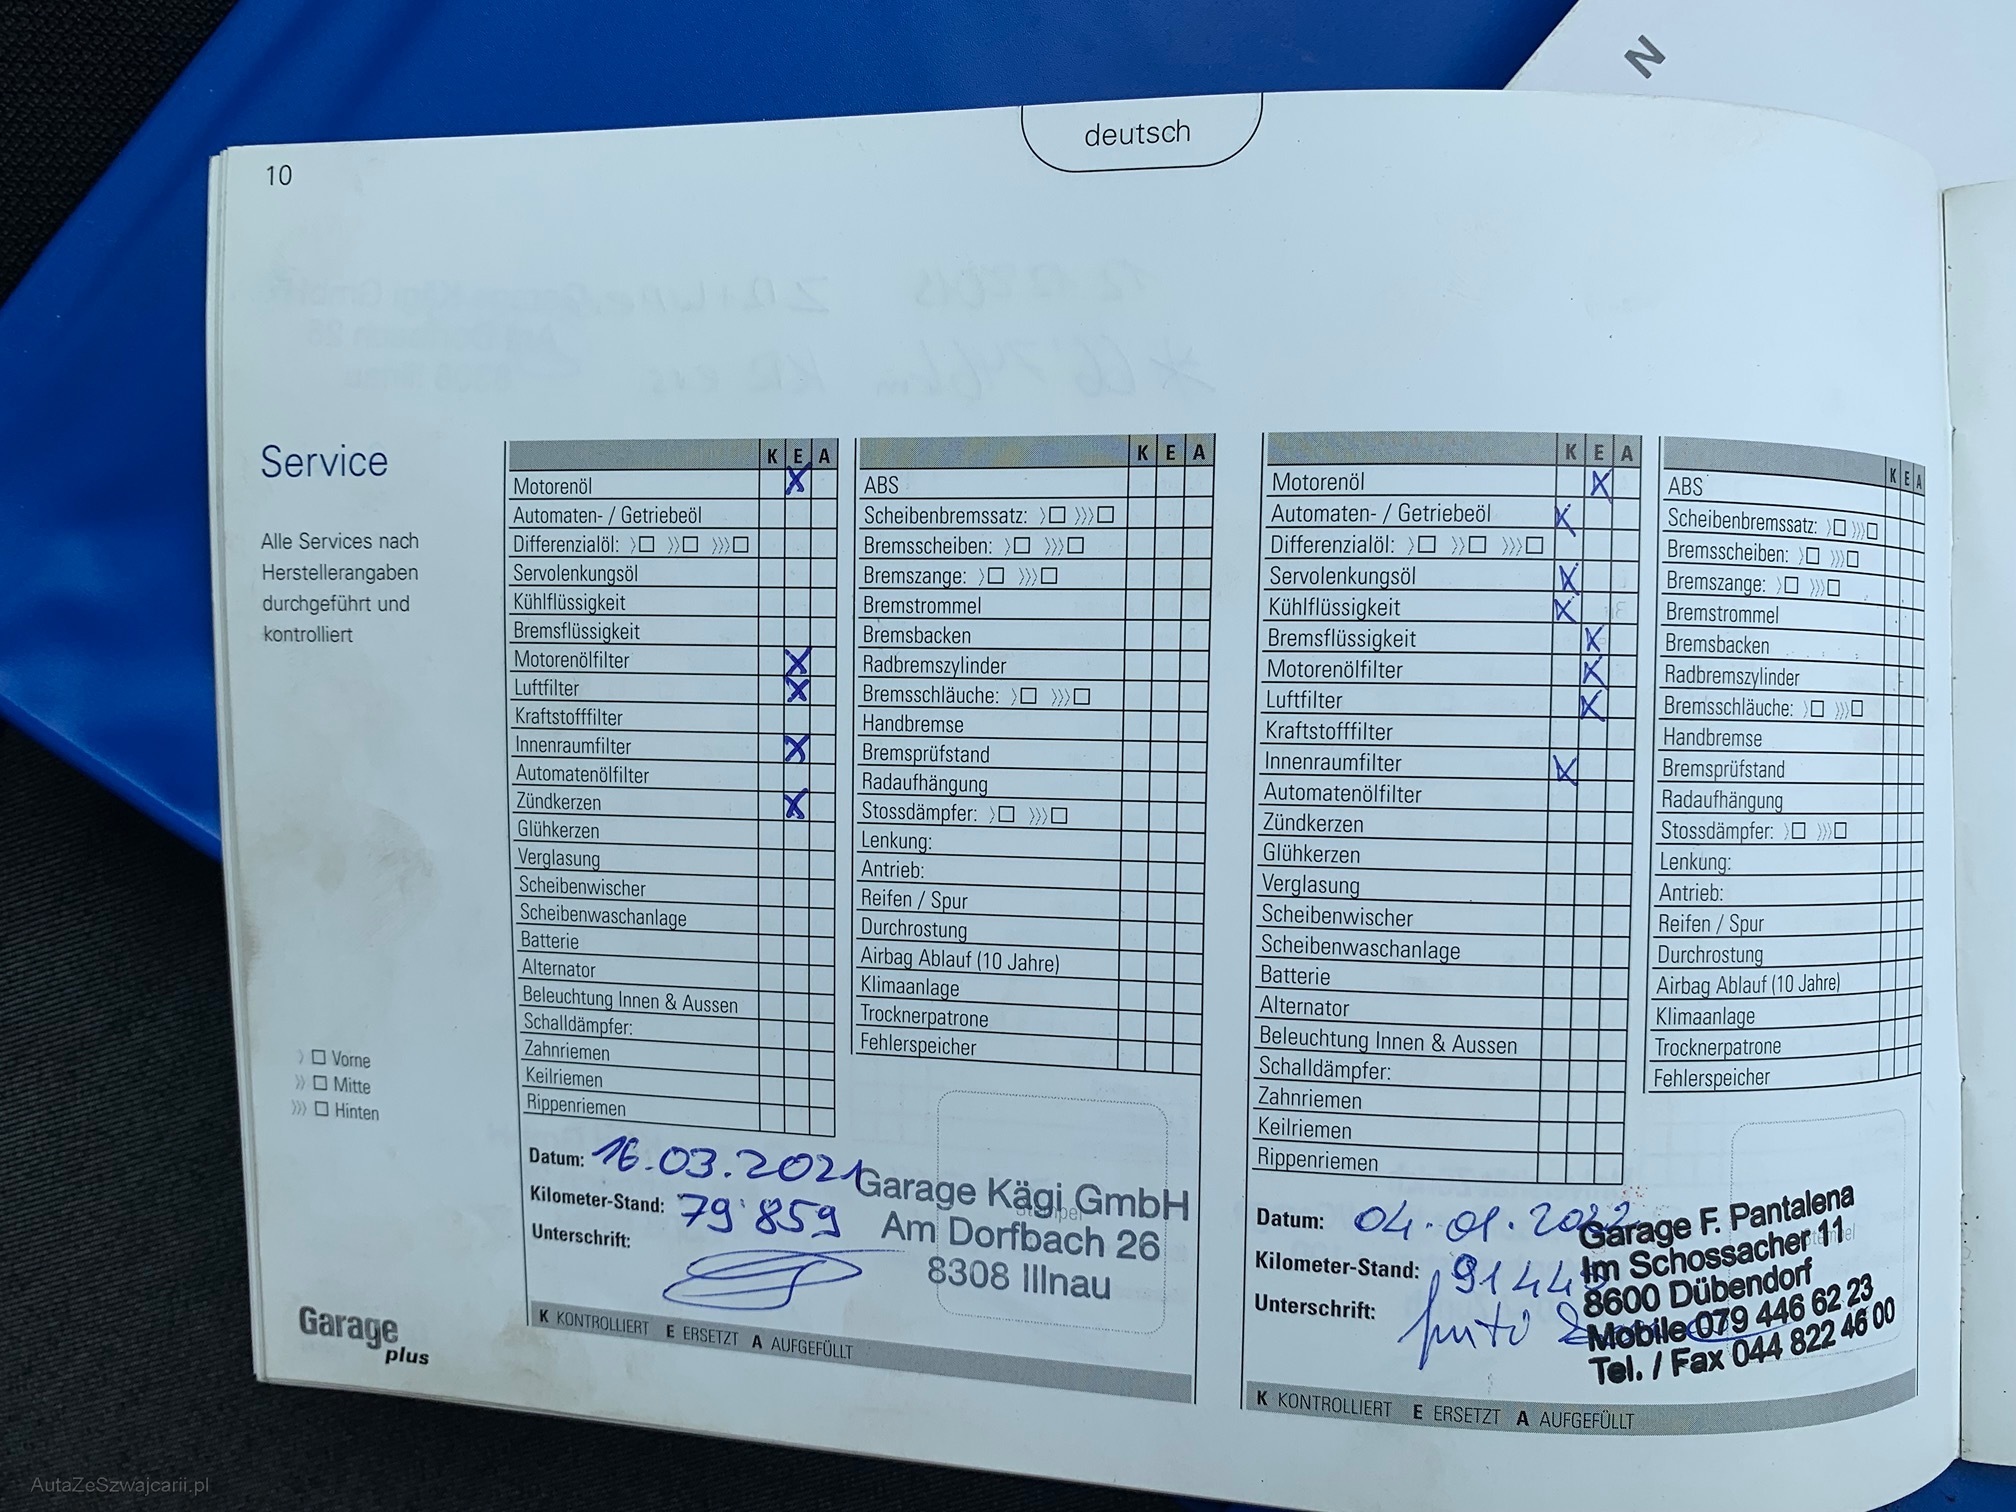 N
deutsch
10
Service
Alle Services nach
Herstellerangaben
durchgeführt und
kontrolliert
〉□ Vorne
〉〉□ Mitte
〉〉〉□ Hinten
Garage
plus
K E A
Motorenöl X
Automaten- / Getriebeöl
Differenzialöl: 〉□ 〉〉□ 〉〉〉□
Servolenkungsöl
Kühlflüssigkeit
Bremsflüssigkeit
Motorenölfilter X
Luftfilter X
Kraftstofffilter
Innenraumfilter X
Automatenölfilter
Zündkerzen X
Glühkerzen
Verglasung
Scheibenwischer
Scheibenwaschanlage
Batterie
Alternator
Beleuchtung Innen & Aussen
Schalldämpfer:
Zahnriemen
Keilriemen
Rippenriemen
K E A
ABS
Scheibenbremssatz: 〉□ 〉〉〉□
Bremsscheiben: 〉□ 〉〉〉□
Bremszange: 〉□ 〉〉〉□
Bremstrommel
Bremsbacken
Radbremszylinder
Bremsschläuche: 〉□ 〉〉〉□
Handbremse
Bremsprüfstand
Radaufhängung
Stossdämpfer: 〉□ 〉〉〉□
Lenkung:
Antrieb:
Reifen / Spur
Durchrostung
Airbag Ablauf (10 Jahre)
Klimaanlage
Trocknerpatrone
Fehlerspeicher
Datum: 16.03.2021
Kilometer-Stand: 79'859
Unterschrift:
Garage Kägi GmbH
Am Dorfbach 26
8308 Illnau
K KONTROLLIERT E ERSETZT A AUFGEFÜLLT
K E A
Motorenöl X
Automaten- / Getriebeöl X
Differenzialöl: 〉□ 〉〉□ 〉〉〉□
Servolenkungsöl X
Kühlflüssigkeit X
Bremsflüssigkeit X
Motorenölfilter X
Luftfilter X
Kraftstofffilter
Innenraumfilter X
Automatenölfilter
Zündkerzen
Glühkerzen
Verglasung
Scheibenwischer
Scheibenwaschanlage
Batterie
Alternator
Beleuchtung Innen & Aussen
Schalldämpfer:
Zahnriemen
Keilriemen
Rippenriemen
K E A
ABS
Scheibenbremssatz: 〉□ 〉〉〉□
Bremsscheiben: 〉□ 〉〉〉□
Bremszange: 〉□ 〉〉〉□
Bremstrommel
Bremsbacken
Radbremszylinder
Bremsschläuche: 〉□ 〉〉〉□
Handbremse
Bremsprüfstand
Radaufhängung
Stossdämpfer: 〉□ 〉〉〉□
Lenkung:
Antrieb:
Reifen / Spur
Durchrostung
Airbag Ablauf (10 Jahre)
Klimaanlage
Trocknerpatrone
Fehlerspeicher
Datum: 04.01.2022
Kilometer-Stand:
Unterschrift:
Garage F. Pantalena
Im Schossacher 11
8600 Dübendorf
Mobile 079 446 62 23
Tel. / Fax 044 822 46 00
K KONTROLLIERT E ERSETZT A AUFGEFÜLLT
AutaZeSzwajcarii.pl